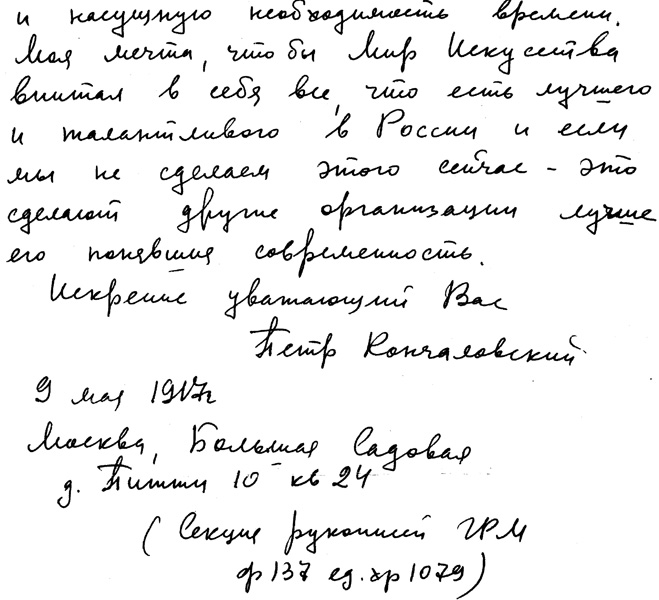 и насущную необходимость времени.
Моя мечта, что бы Мир Искусства
впитал в себя все, что есть лучшего
и талантливого в России и если
мы не сделаем этого сейчас - это
сделают другие организации лучше
его понявшия современность.
Искрение уважающий Вас
Петр Кончаловский
9 мая 1917г
Москва, Большая Садовая
д. Пигит 10 кв 24
(Секция рукописей ГРМ
ф 137 ед. хр 1079)